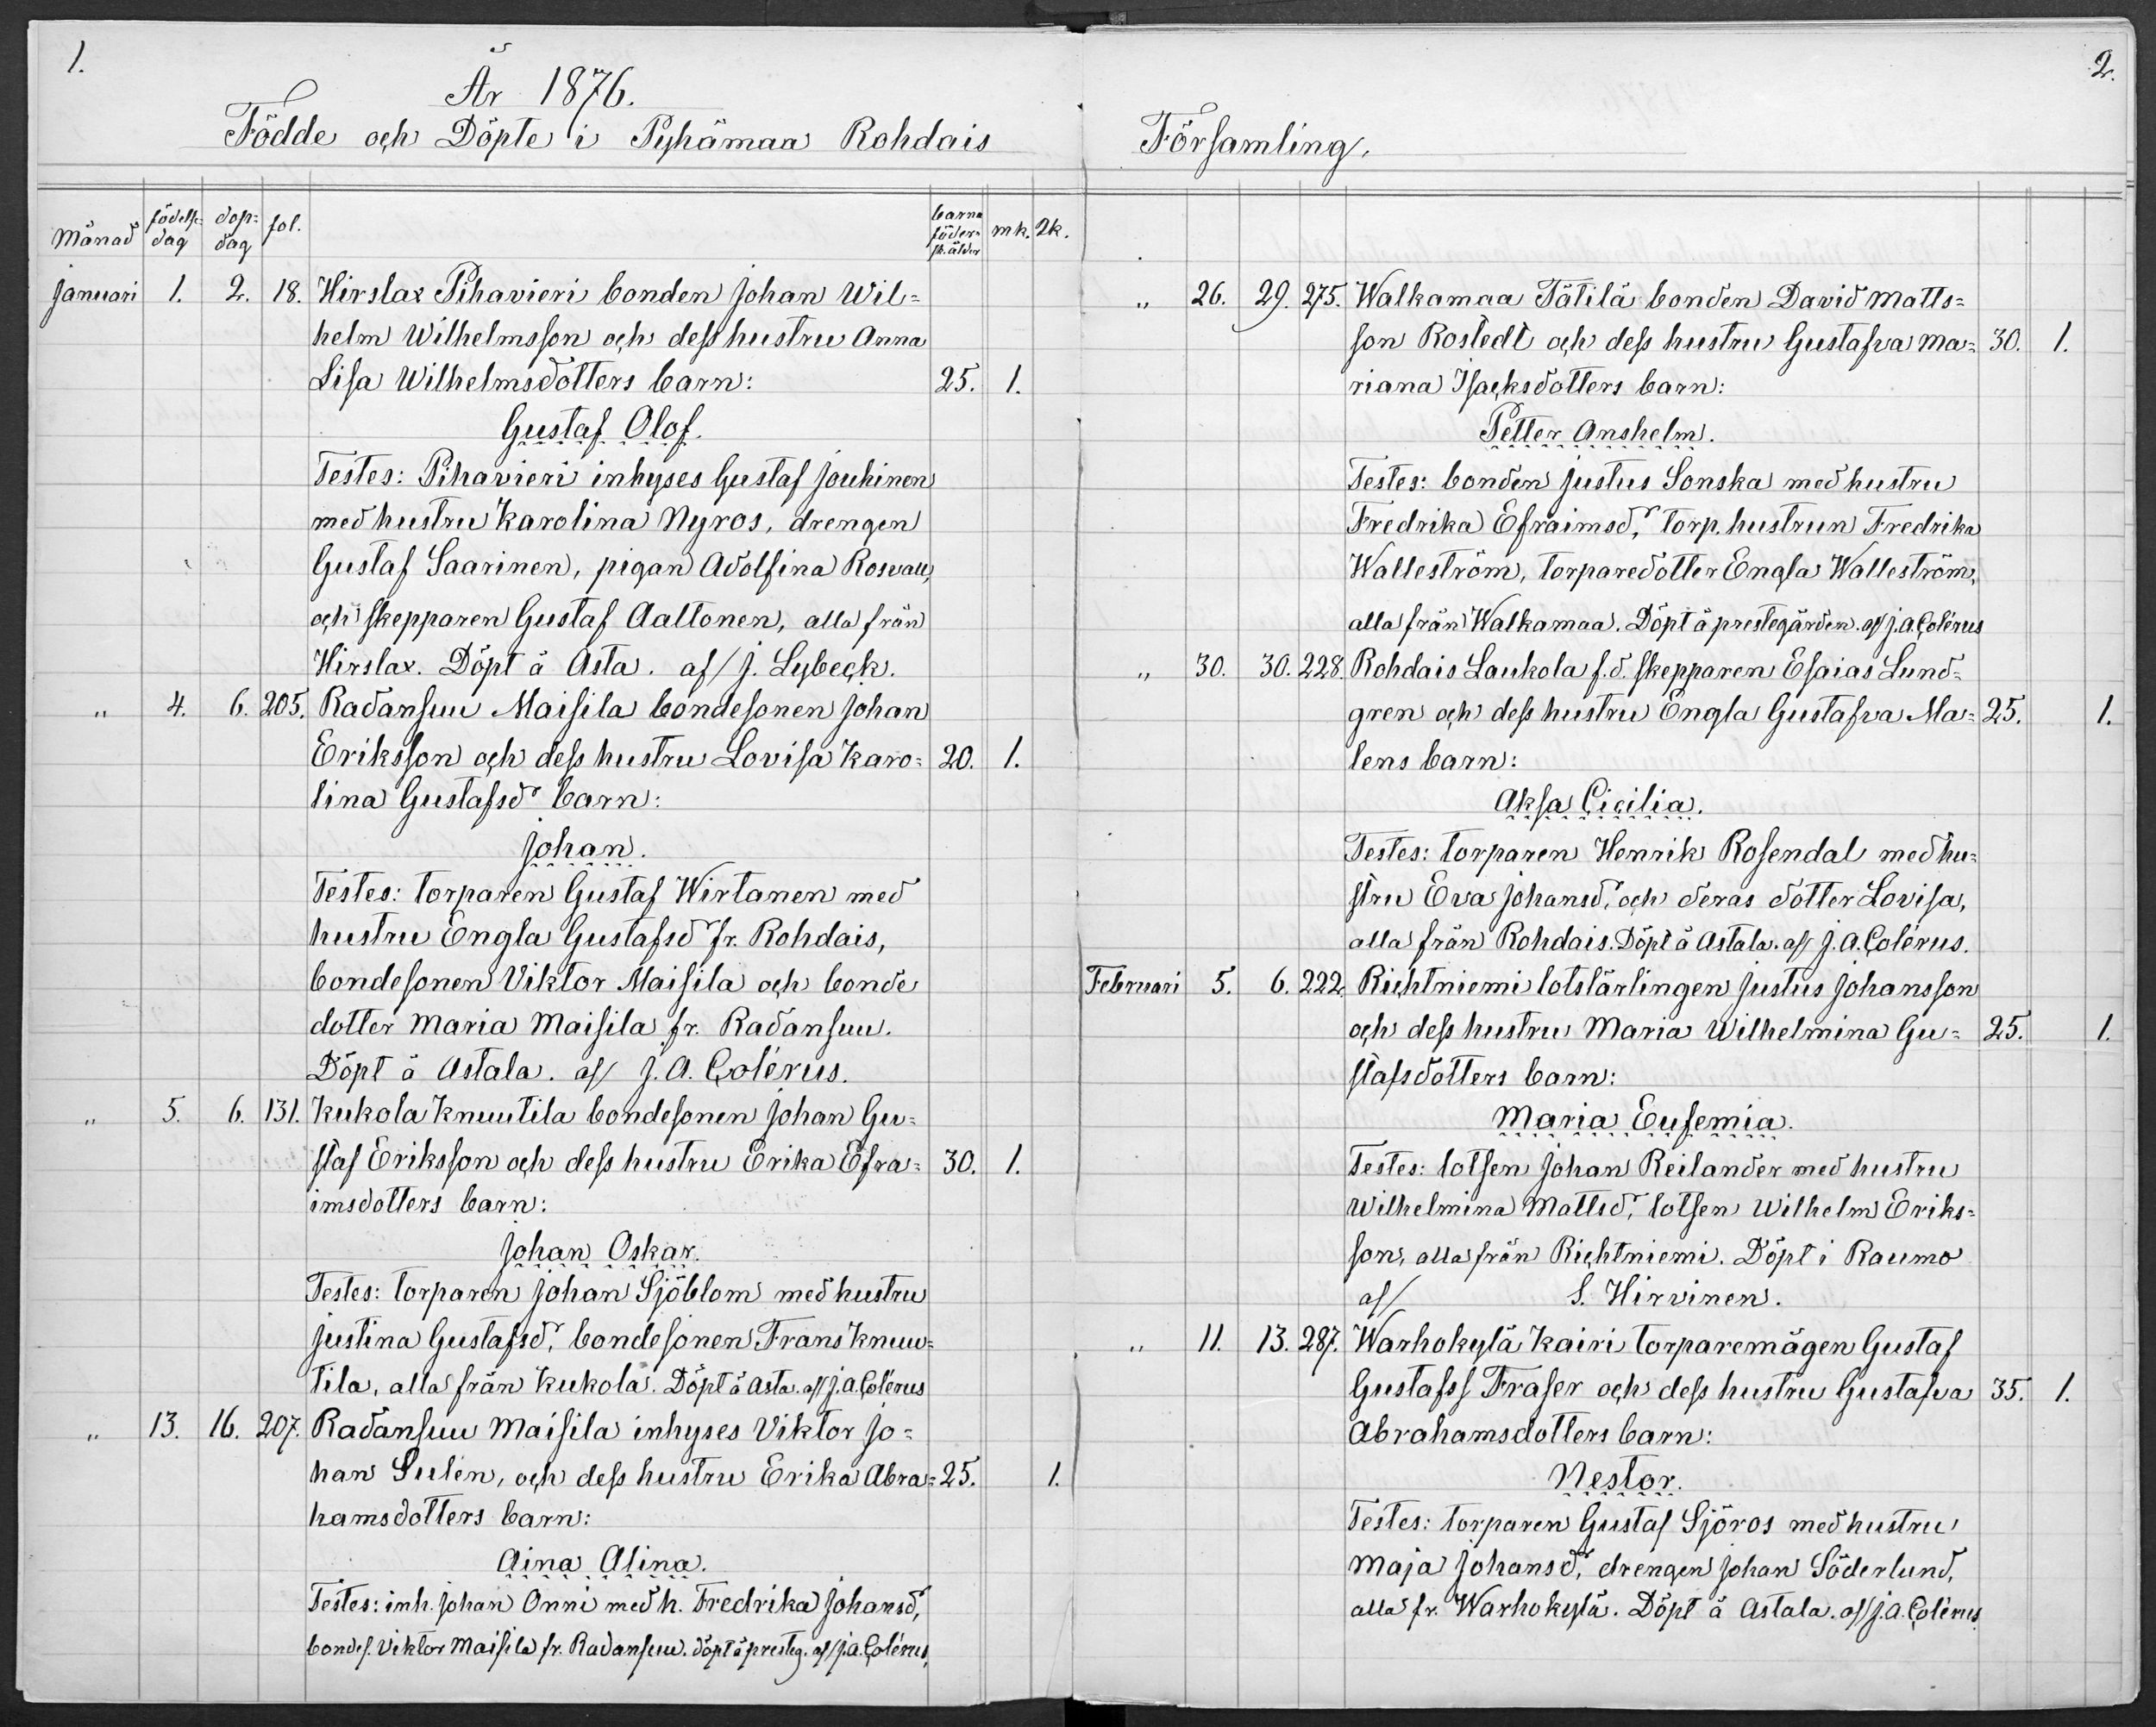 1.
År 1876.
Födde och Döpte i Pyhämaa Rohdais
Månad födelse= dag dop= dag fol. barna föder= sk. ålder mk. qk.
Januari 1. 2. 18. Hirslax Pihavieri bonden Johan Wil=
helm Wilhelmsson och dess hustru Anna
Lisa Wilhelmsdotters barn: 25. 1.
Gustaf Olof.
Testes: Pihavieri inhyses Gustaf Jouhinen
med hustru Karolina Nyros, drengen
Gustaf Saarinen, pigan Adolfina Rosvall,
och skepparen Gustaf Aaltonen, alla från
Hirslax. Döpt å Asta. af/ J. Lybeck.
" 4. 6. 205. Radansuu Maisila bondesonen Johan
Eriksson och dess hustru Lovisa Karo= 20. 1.
lina Gustafsdr barn:
Johan.
Testes: torparen Gustaf Wirtanen med
hustru Engla Gustafsdr fr. Rohdais,
bondesonen Viktor Maisila och bonde
dotter Maria Maisila fr. Radansuu.
Döpt å Astala. af/ J. A. Colérus.
" 5. 6. 131. Kukola Knuutila bondesonen Johan Gu=
staf Eriksson och dess hustru Erika Efra= 30. 1.
imsdotters barn:
Johan Oskar.
Testes: torparen Johan Sjöblom med hustru
Justina Gustafsdr, bondesonen Frans Knuu=
tila, alla från Kukola. Döpt å Asta. af/ J. A. Colérus
" 13. 16. 207. Radansuu Maisila inhyses Viktor Jo=
han Sulén, och dess hustru Erika Abra= 25. 1.
hamsdotters barn:
Aina Alina.
Testes: inh. Johan Onni med h. Fredrika Johansdr,
bondes. Viktor Maisila fr. Radansuu. döpt å presteg. af/ J. A. Colérus,
2.
Församling.
" 26. 29. 275. Walkamaa Tätilä bonden David Matts=
son Rostedt och dess hustru Gustafva Ma= 30. 1.
riana Isacksdotters barn:
Petter Anshelm.
Testes: bonden Justus Sonska med hustru
Fredrika Efraimsdr, torp. hustrun Fredrika
Walleström, torparedotter Engla Walleström,
alla från Walkamaa. Döpt å prestegården. af/ J. A. Colérus
" 30. 30. 228. Rohdais Laukola f. d. skepparen Esaias Lund=
gren och dess hustru Engla Gustafva Ma= 25. 1.
lens barn:
Aksa Cicilia.
Testes: torparen Henrik Rosendal med hu=
stru Eva Johansdr, och deras dotter Lovisa,
alla från Rohdais. Döpt å Astala. af/ J. A. Colérus.
Februari 5. 6. 222. Richtniemi lotslärlingen Justus Johansson
och dess hustru Maria Wilhelmina Gu= 25. 1.
stafsdotters barn:
Maria Eufemia.
Testes: lotsen Johan Reilander med hustru
Wilhelmina Mattsdr, lotsen Wilhelm Eriks=
son, alla från Richtniemi. Döpt i Raumo
af/ S. Hirvinen.
" 11. 13. 287. Warhokylä Kairi torparemågen Gustaf
Gustafss Fraser och dess hustru Gustafva 35. 1.
Abrahamsdotters barn:
Nestor.
Testes: torparen Gustaf Sjöros med hustru
Maja Johansdr, drengen Johan Söderlund,
alla fr. Warhokylä. Döpt å Astala. af/ J. A. Colérus.